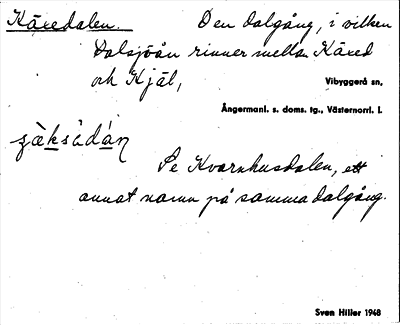 Käxedalen. Den dalgång, i vilken
Dalsjöån rinner mellan Käxed
och Kjäl, Vibyggerå sn,
Ångermanl. s. doms. tg., Västernorrl. l.
Se Kvarnhusdalen, ett
annat namn på samma dalgång.
Sven Hiller 1948